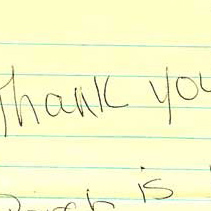 Thank you
is